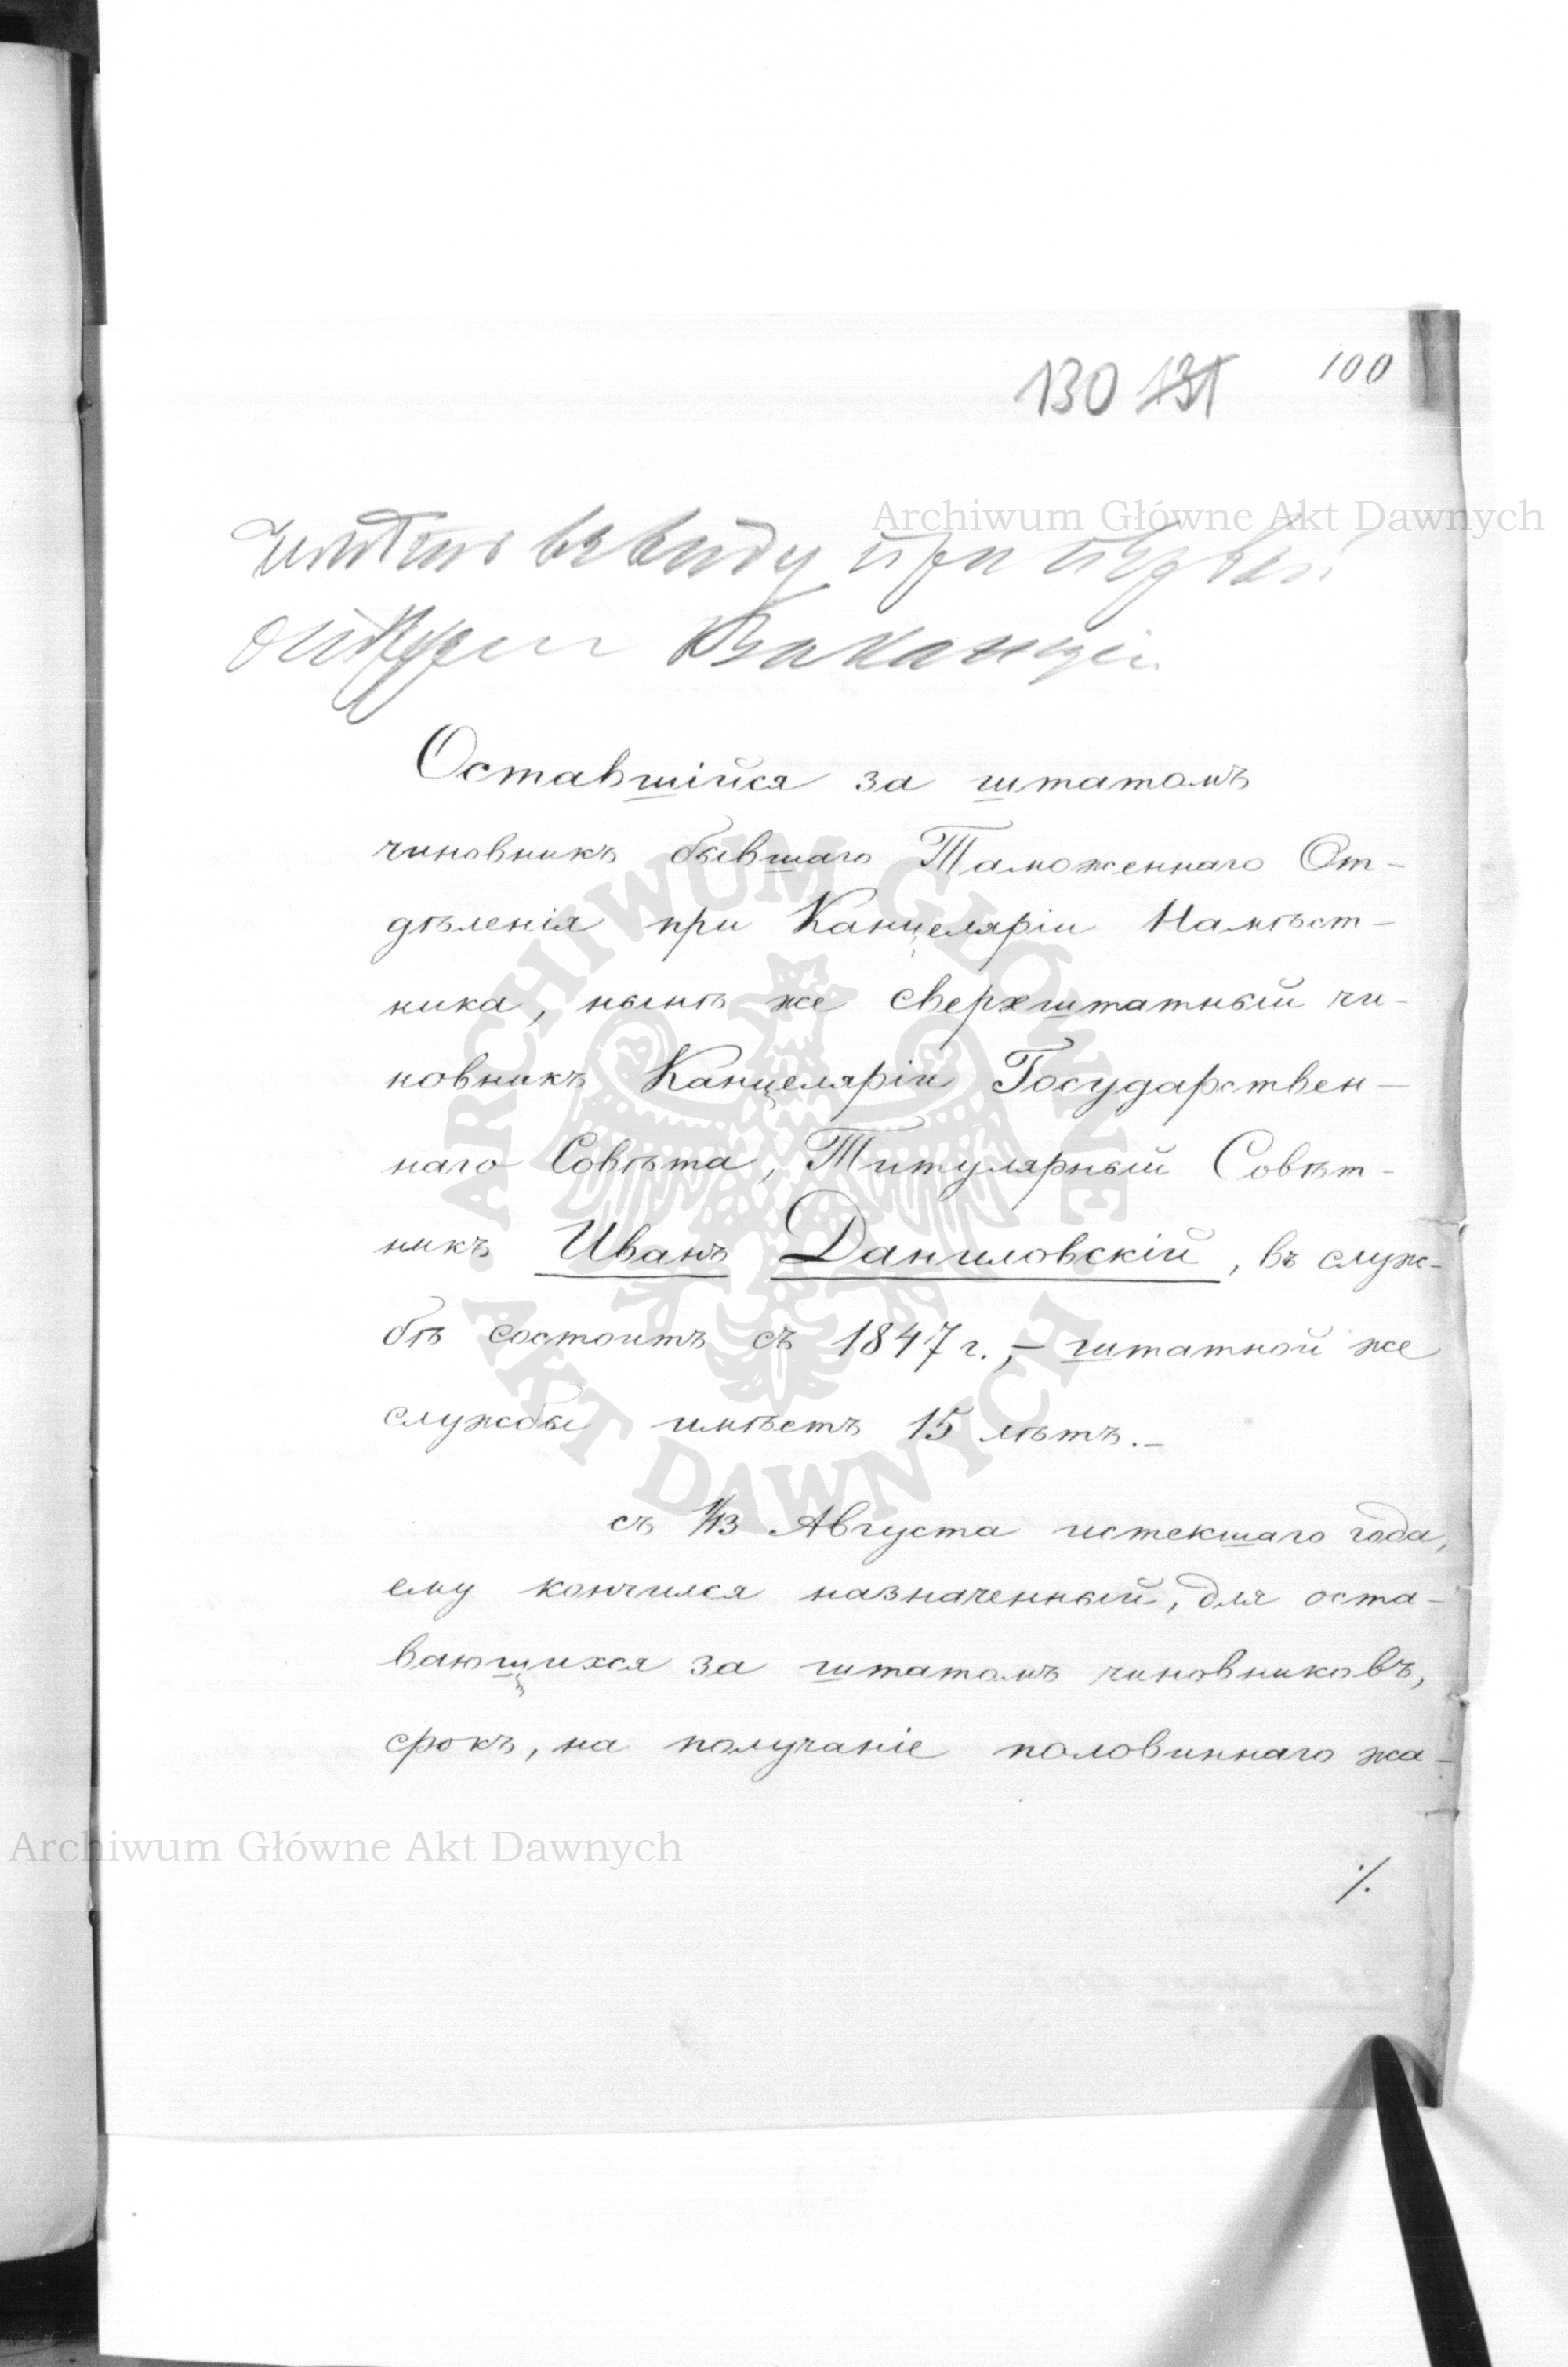 100
130 131
Archiwum Główne Akt Dawnych
имѣть въ виду при первой
открытой Ваканціи
Оставшійся за штатомъ
чиновникъ бывшаго Таможеннаго От-
дѣленія при Канцеляріи Намѣст-
ника, нынѣ же сверхштатный чи-
новникъ Канцеляріи Государствен-
наго Совѣта, Титулярный Совѣт-
никъ Иванъ Даниловскій, въ служ-
бѣ состоитъ съ 1847 г., – штатной же
службы имѣетъ 15 лѣтъ. –
съ 1/13 Августа истекшаго года,
ему кончился назначенный, для оста-
вающихся за штатомъ чиновниковъ,
срокъ, на получаніе половиннаго жа-
Archiwum Główne Akt Dawnych
./.
ARCHIWUM GŁÓWNE
AKT DAWNYCH